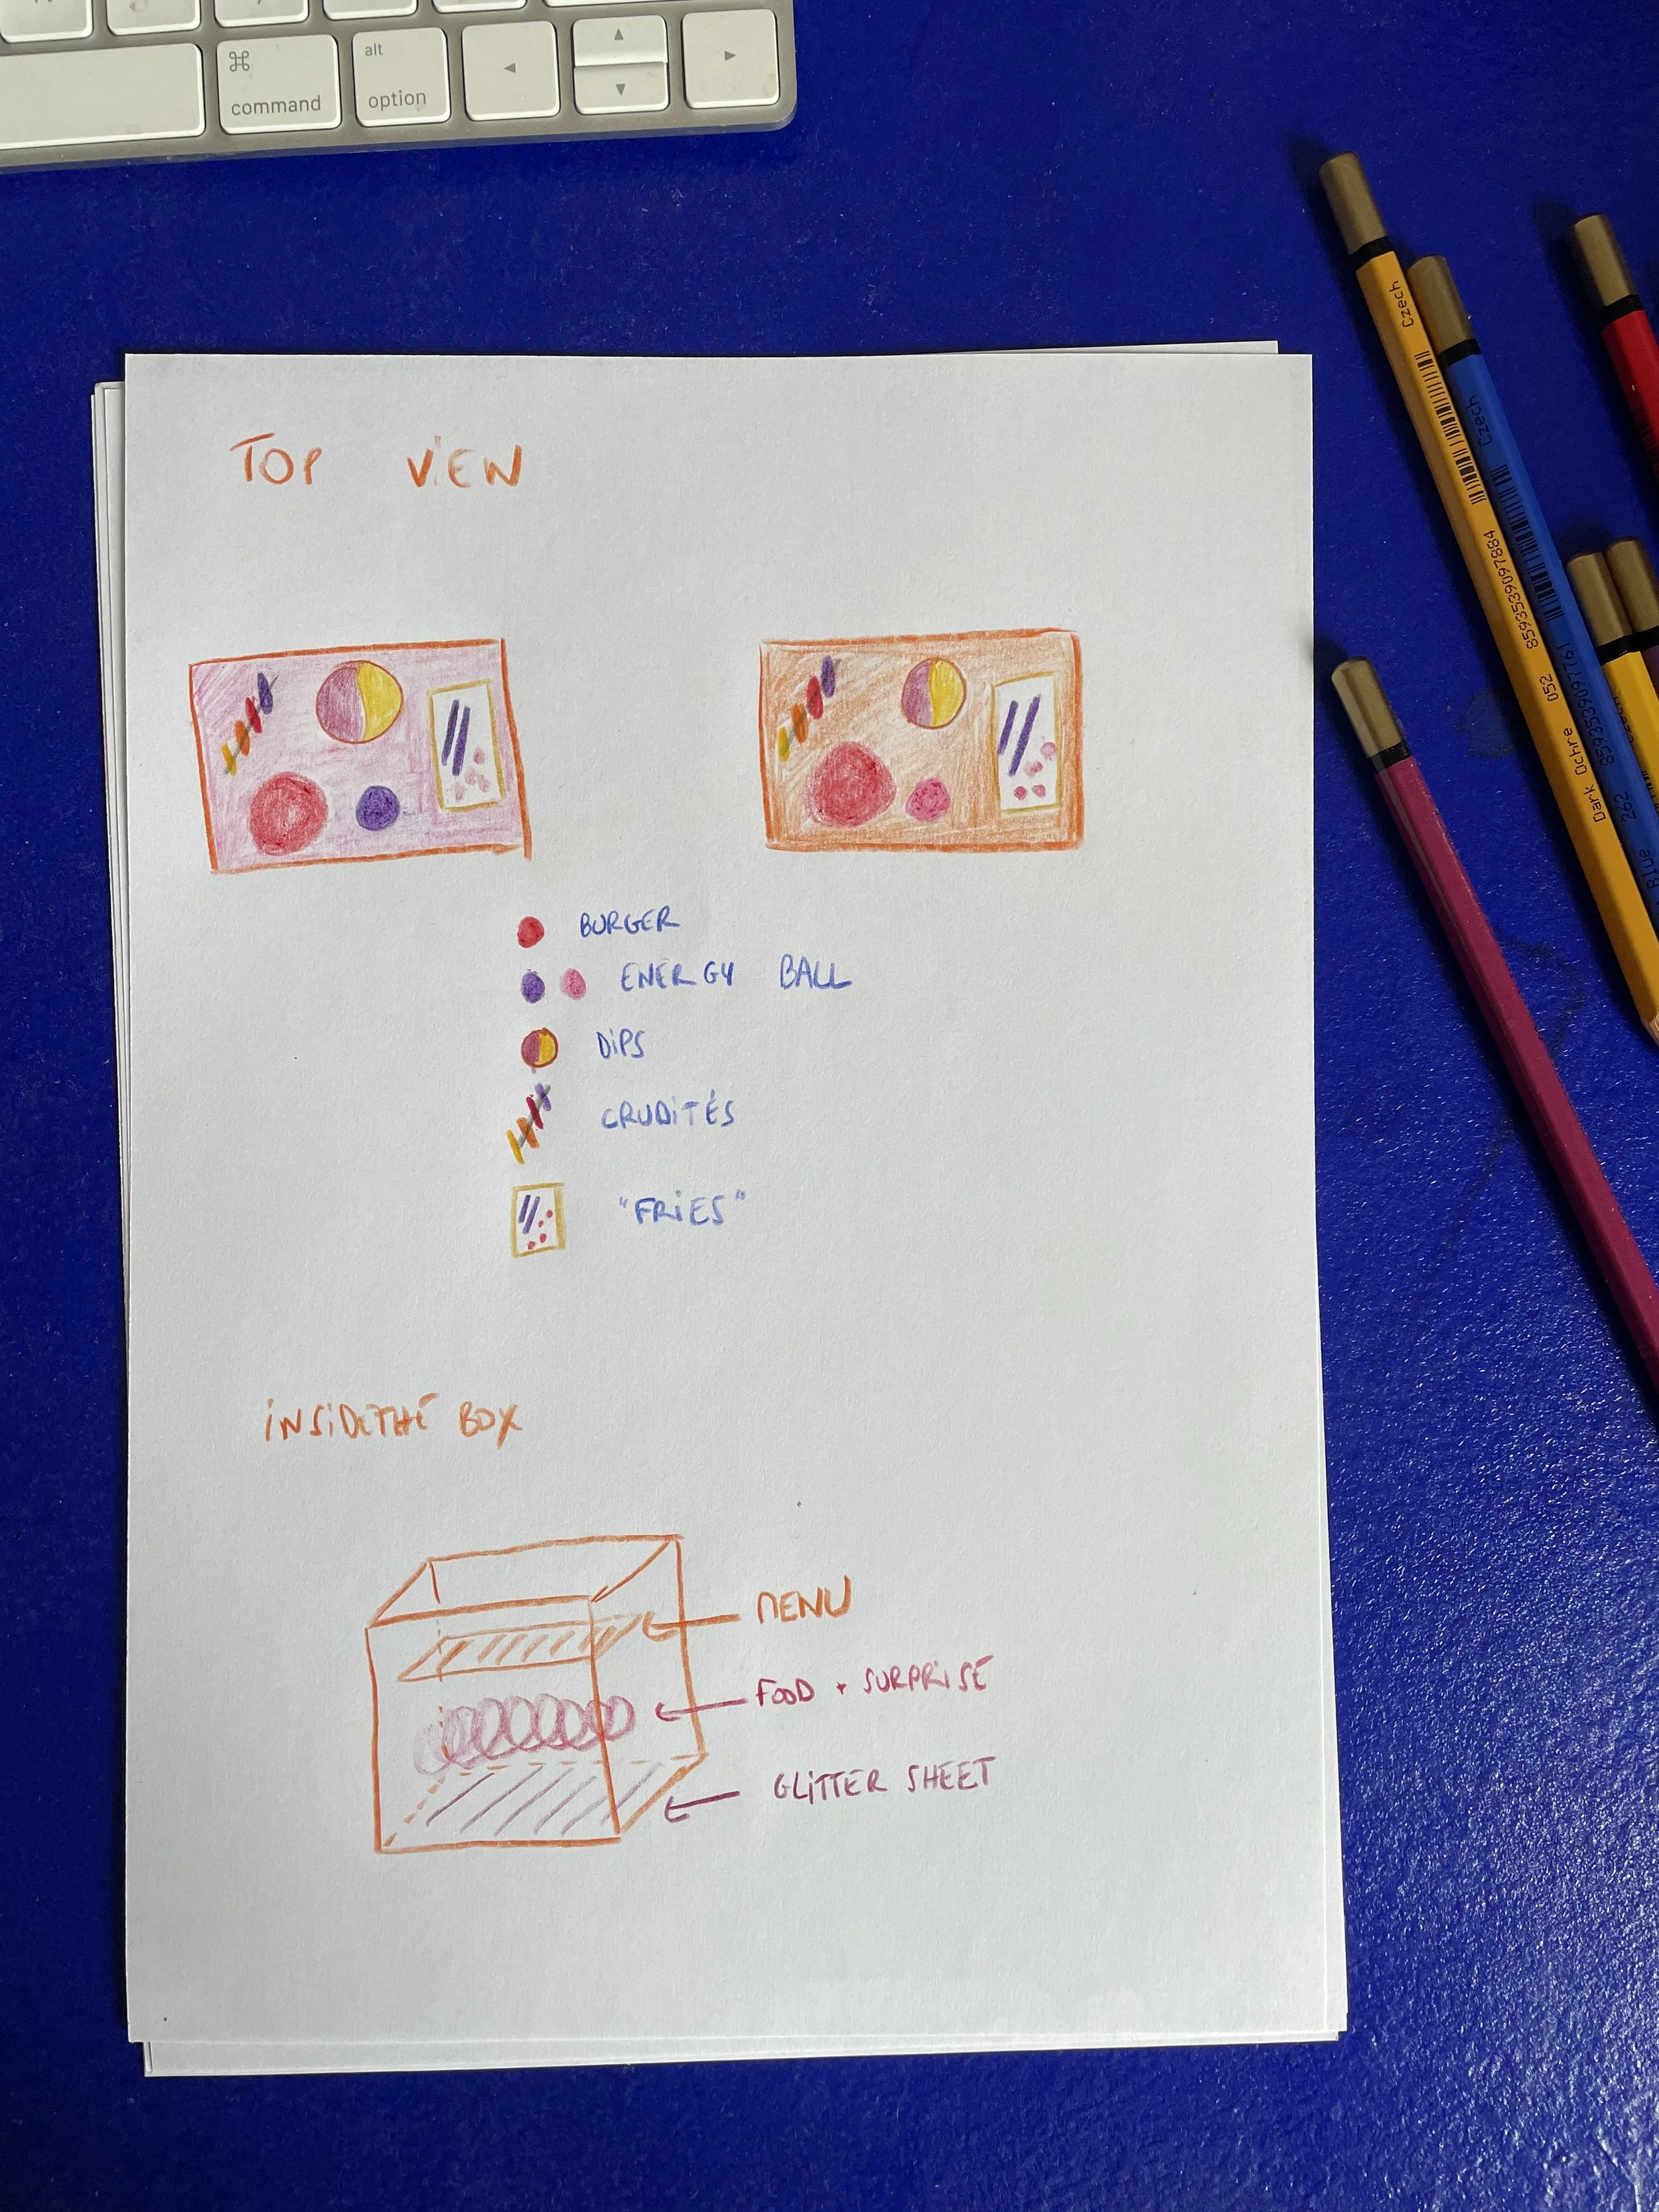 command
alt
option
Czech
8593539097884
052
Dark Ochre
Czech
8593539097761
262
Blue
TOP VIEW
BURGER
ENERGY BALL
DiPS
CRUDiTÉS
"FRiES"
iNSiDETHE BOX
MENU
FOOD + SURPRiSE
GLiTTER SHEET